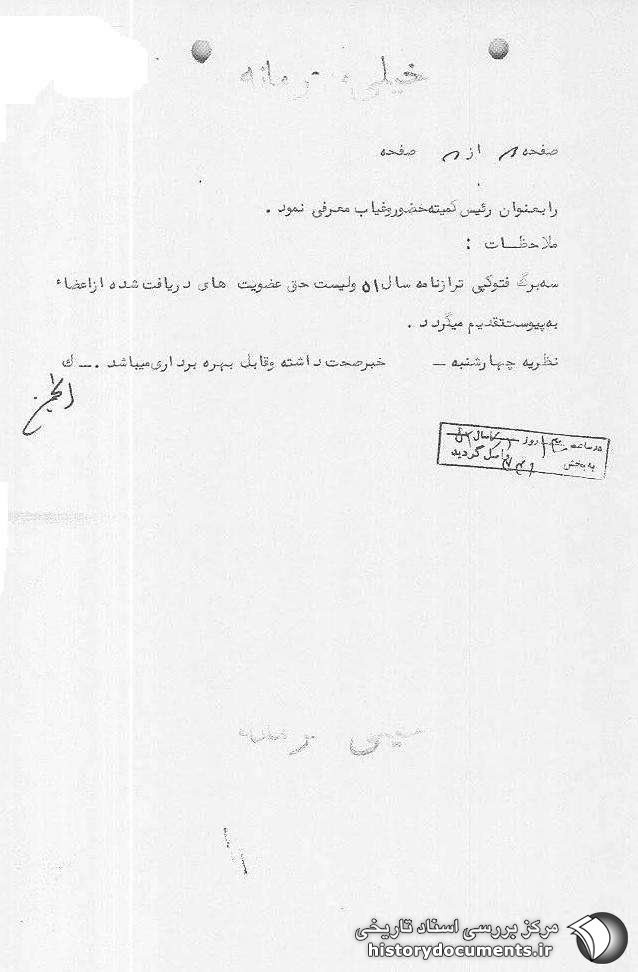 خیلی محرمانه
صفحه از صفحه
را بعنوان رئیس کمیته حضور و غیاب معرفی نمود .
ملاحظات :
سه برگ فتوکپی ترازنامه سال ۵۱ ولیست حق عضویت های دریافت شده از اعضاء
به پیوست تقدیم میگردد .
نظریه چهارشنبه – خبر صحت داشته وقابل بهره برداری میباشد . – ك
در ساعت روز سال
به بخش واصل گردید
مرکز بررسی اسناد تاریخی
historydocuments.ir